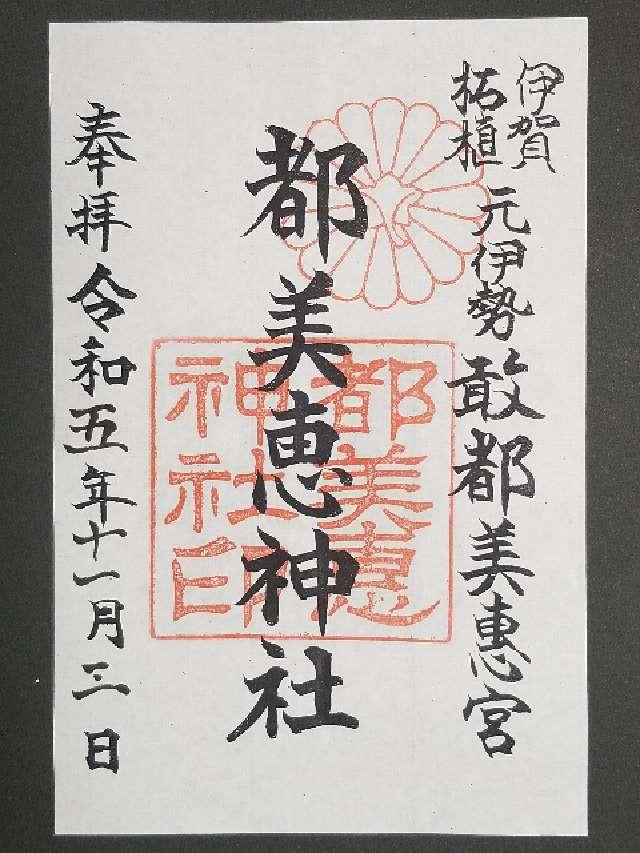 伊賀
柘植
元伊勢敢都美恵宮
都美恵神社
都美恵神社印
奉拝令和五年十一月三日